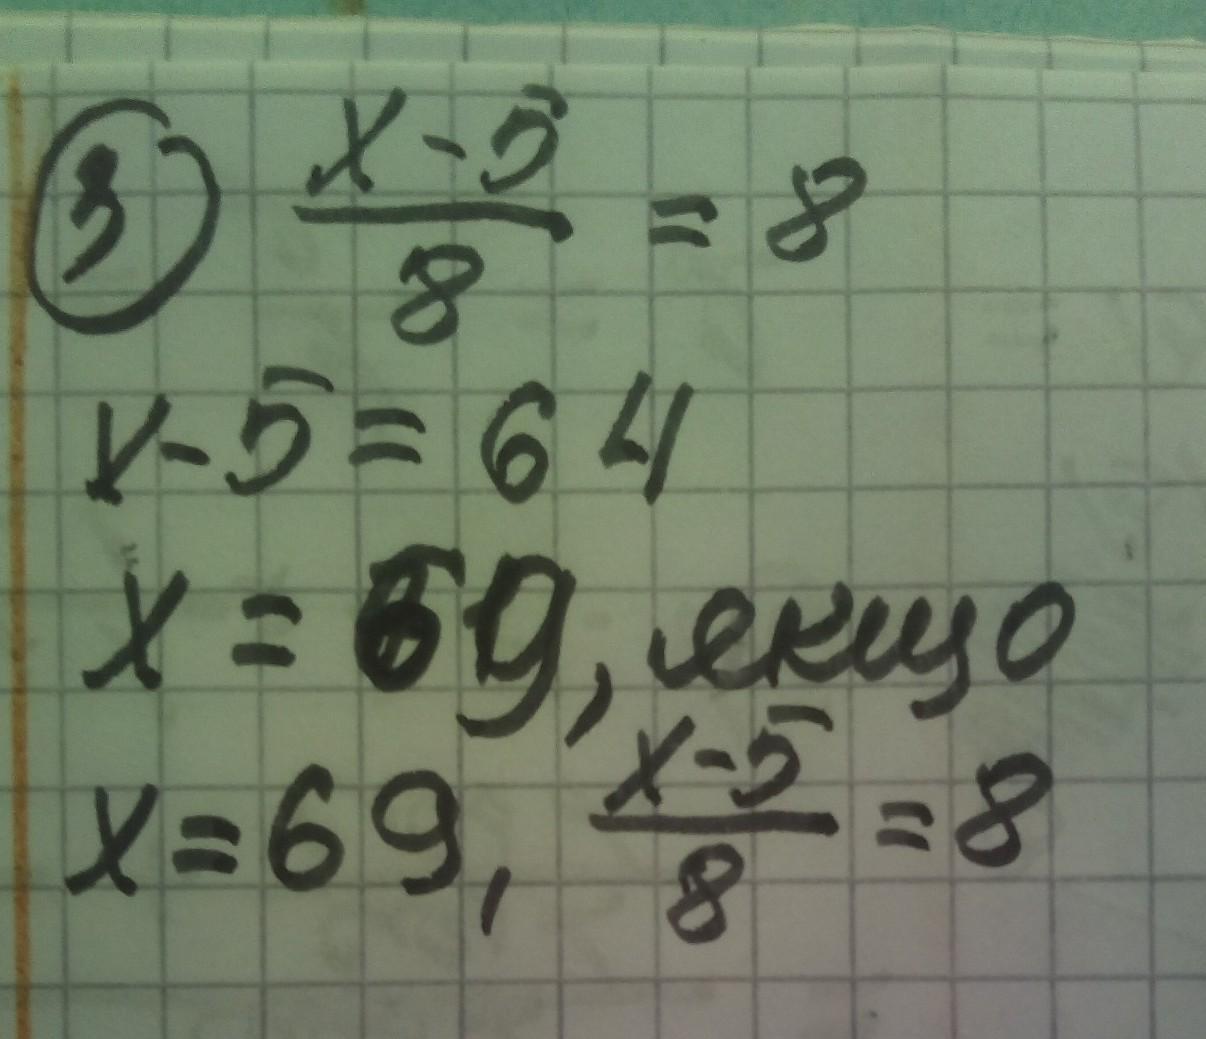 3 (x-5)/8 = 8
x-5 = 64
x = 69, якщо
x=69, (x-5)/8 = 8